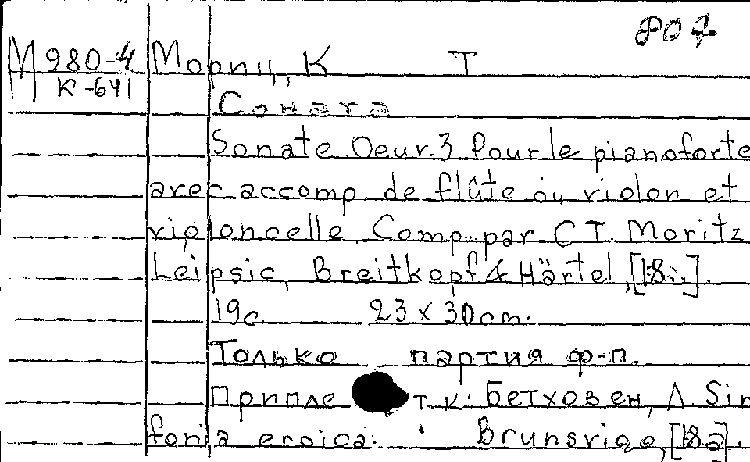 РОФ
М 980-4 Мориц, К Т
К-641
Соната
Sonate Oeuv.3 Pour le pianoforte
avec accomp de flûte ou violon et
violoncelle. Comp. par C T. Moritz
Leipsic, Breitkopf & Härtel, [18..].
19с. 23 х 30cm.
Только партия ф-п.
Припле т к: Бетховен, Л. Sin
fonia eroica. Brunsvigo, [18